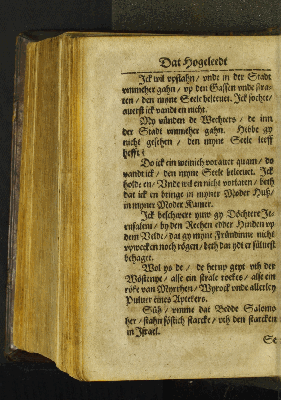 Dat Hogeleedt
Jck wil vpstahn / vnde in der Stadt
vmmeher gahn / vp den Gassen vnde stra-
ten / den myne Seele beleuet. Jck sochte /
auerst ick vandt en nicht.
My vünden de Wechters / de inn
der Stadt vmmeher gahn. Hebbe gy
nicht gesehen / den myne Seele leeff
hefft?
Do ick ein weinich vorauer quam / do
vandt ick / den myne Seele beleuet. Jck
holde en / Vnde wil en nicht vorlaten / beth
dat ick en bringe in myner Moder Huß /
in myner Moder Kamer.
Jck beschwere yuw gy Döchtere Je-
rusalems / by den Rechen edder Hinden vp
dem Velde / dat gy myne Fründinne nicht
vpwecken noch rögen / beth dat ydt er süluest
behaget.
Wol ys de / de herup geyt vth der
Wöstenye / alse ein strale rokes / alse ein
röke van Myrrhen / Wyrock vnde allerley
Puluer eines Aptekers.
Süh / vmme dat Bedde Salomo
her / stahn föstich starcke / vth den starcken
in Jsrael.
Se